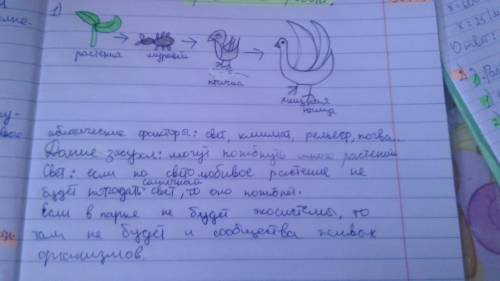 1)
растения
муравей
птичка
хищная
птица
абиотические факторы: свет, климат, рельеф, почва...
Долгие засухи: могут погибнуть много растений
Свет: если на светолюбивое растение не
будет попадать солнечный свет, то оно погибнет.
Если в парке не будет экосистемы, то
там не будет и сообщества живых
организмов.
Ответ: